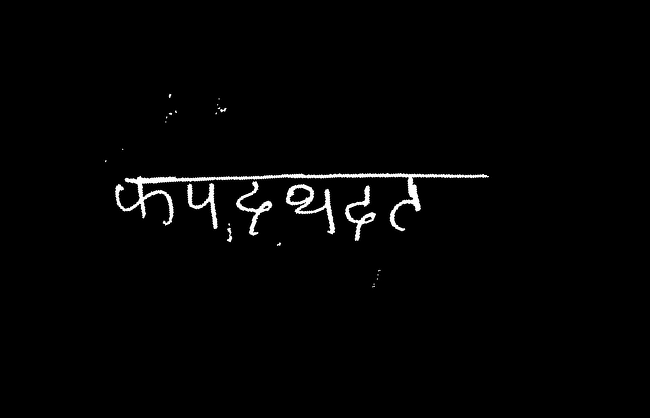 कपदथदत